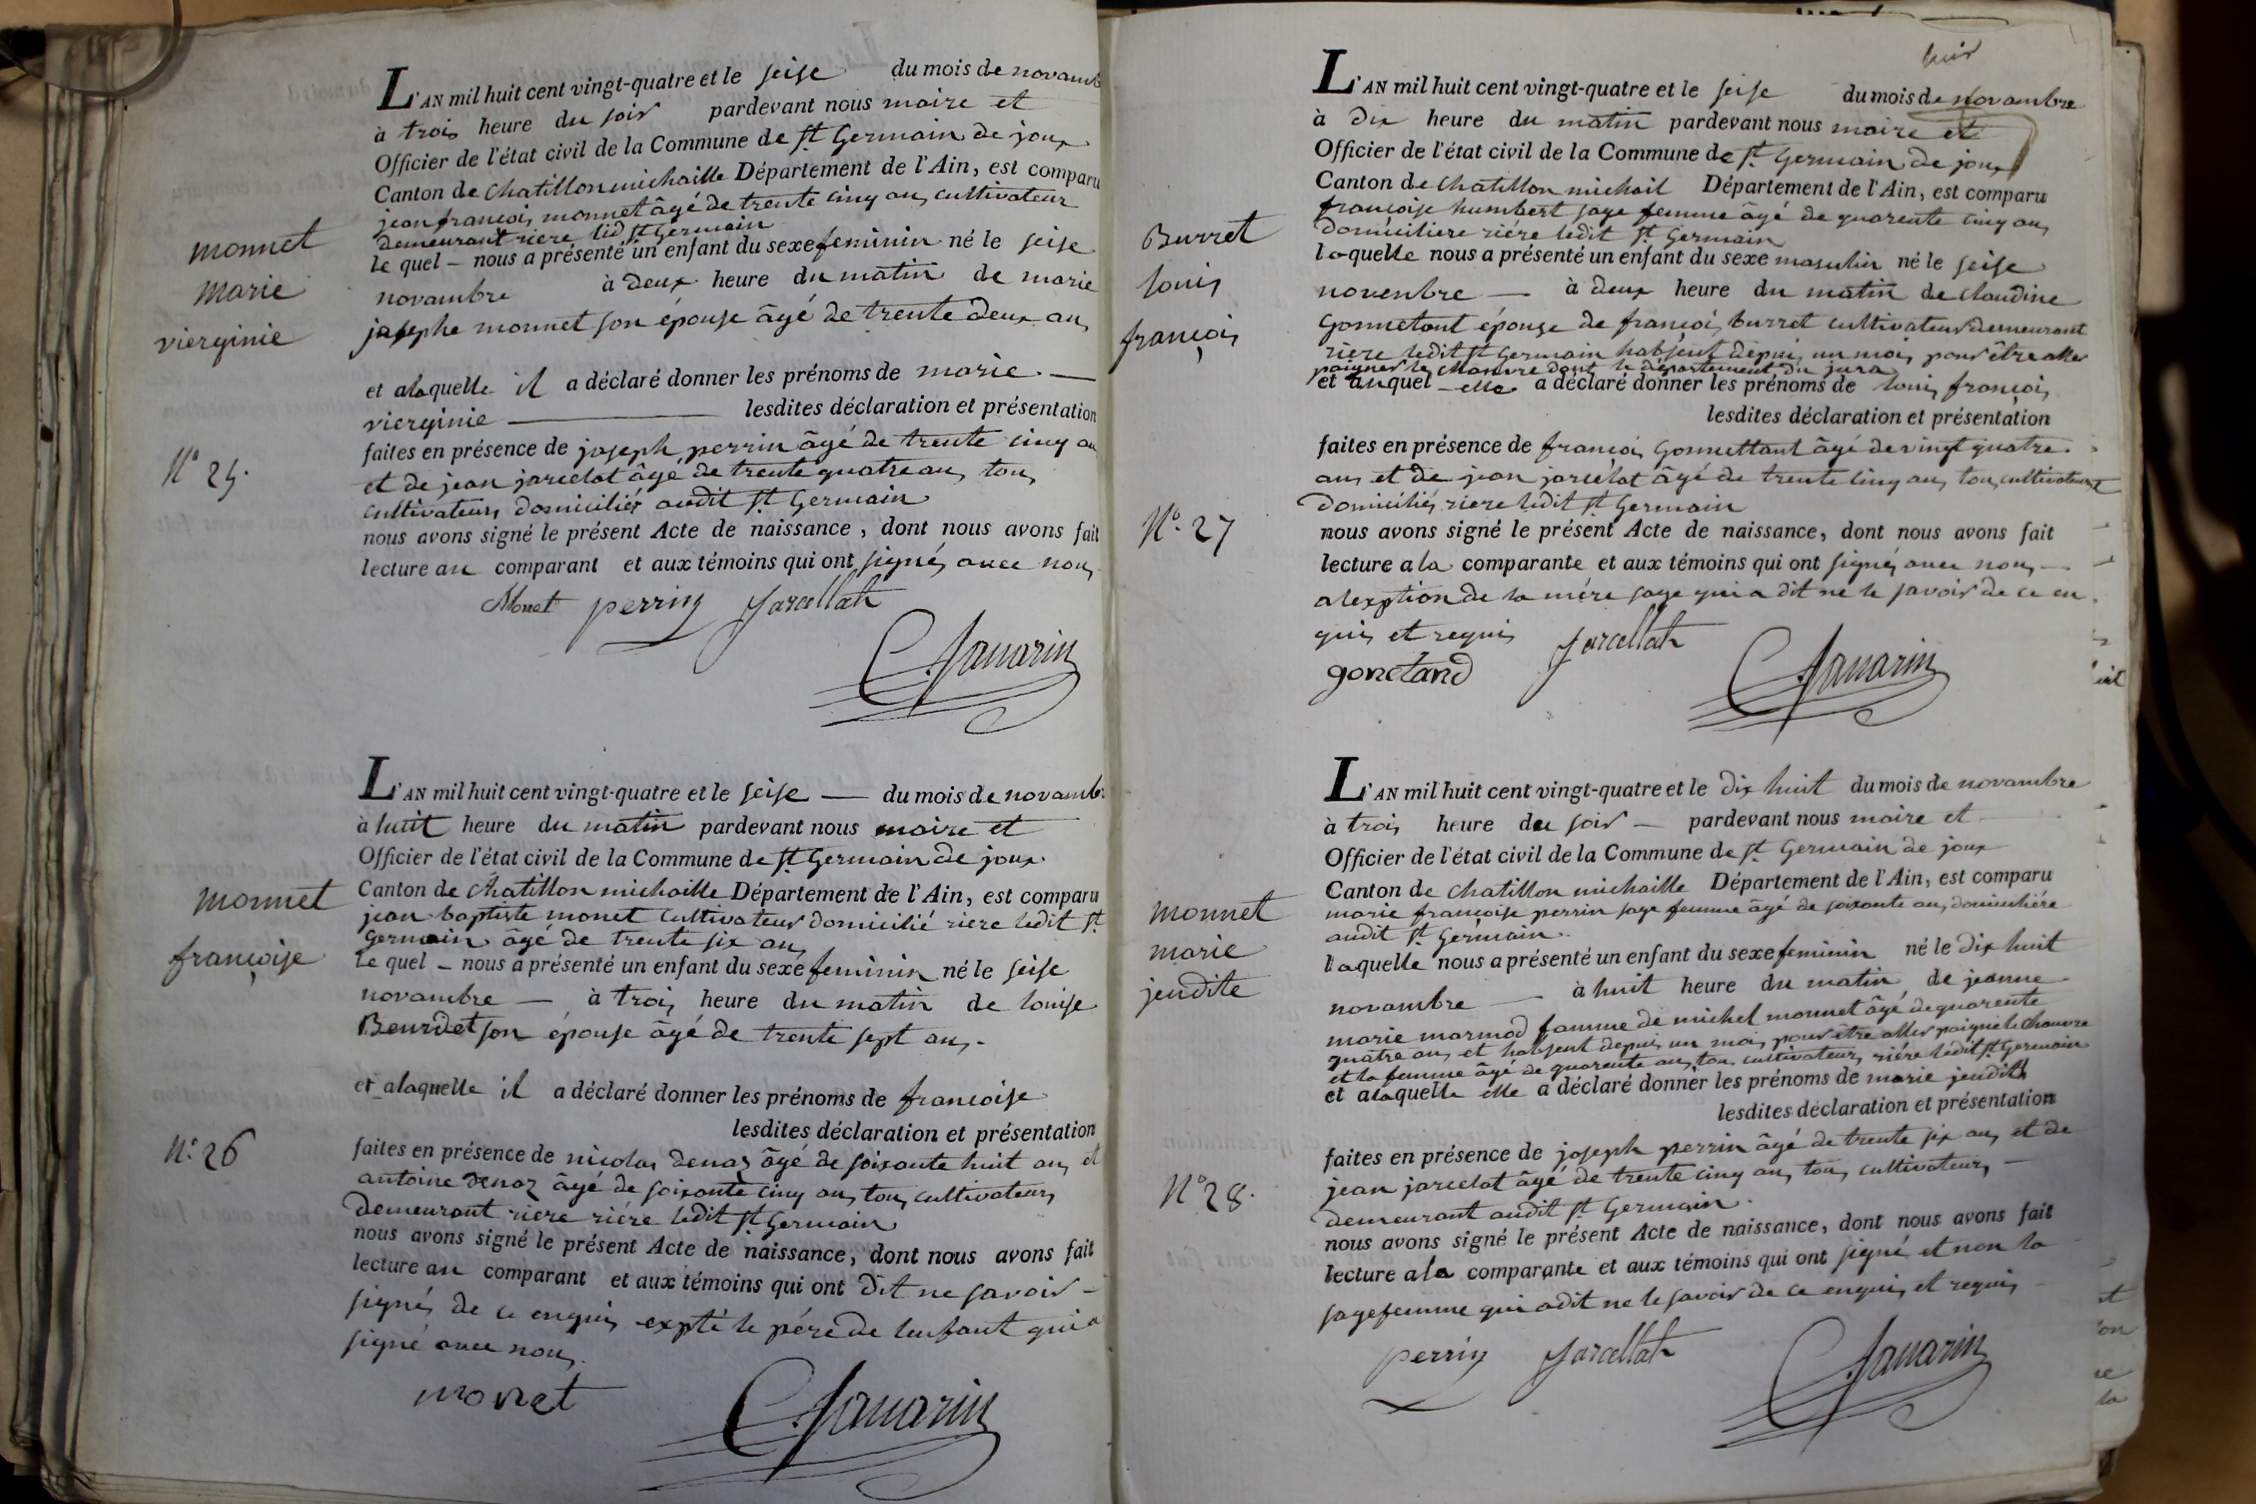 L'AN mil huit cent vingt-quatre et le seise du mois de novamb
à trois heure du soir pardevant nous maire et
Officier de l'état civil de la Commune de St Germain de joux
Canton de chatillon michaille Département de l'Ain, est comparu
jean françois monnet âgé de trente cinq ans cultivateur
demeurant riere lid St Germain
le quel — nous a présenté un enfant du sexe feminin né le seise
novambre à deux heure du matin de marie
josephe monnet son épouse âgé de trente deux ans
et alaquelle il a déclaré donner les prénoms de marie —
vierginie — lesdites déclaration et présentation
faites en présence de joseph perrin âgé de trente cinq an
et de jean jarcelot âgé de trente quatre ans tous
cultivateurs domiciliés audit St Germain
nous avons signé le présent Acte de naissance, dont nous avons fait
lecture au comparant et aux témoins qui ont signés avec nous
Monet perrin Jarcellat
monnet
marie
vierginie
N° 25.
L'AN mil huit cent vingt-quatre et le seise — du mois de novamb
à huit heure du matin pardevant nous maire et
Officier de l'état civil de la Commune de St Germain de joux
Canton de chatillon michaille Département de l'Ain, est comparu
jean baptiste monet cultivateur domicilié riere ledit St
Germain âgé de trente six ans
le quel — nous a présenté un enfant du sexe feminin né le seise
novambre — à trois heure du matin de louise
Beurdet son épouse âgé de trente sept ans.
et alaquelle il a déclaré donner les prénoms de françoise
lesdites déclaration et présentation
faites en présence de nicolas denaz âgé de soixante huit ans et
antoine denaz âgé de soixante cinq ans tous cultivateurs
demeurant riere riére ledit St Germain
nous avons signé le présent Acte de naissance, dont nous avons fait
lecture au comparant et aux témoins qui ont dit ne savoir —
signés de ce enquis expté le pére de lenfant qui a
signé avec nous.
monet
monnet
françoise
N° 26
huit
L'AN mil huit cent vingt-quatre et le seise du mois de novambre
à dix heure du matin pardevant nous maire et
Officier de l'état civil de la Commune de St Germain de joux
Canton de chatillon michail Département de l'Ain, est comparu
françoise humbert sage femme âgé de quarente cinq ans
domiciliere riére ledit St Germain
laquelle nous a présenté un enfant du sexe masculin né le seise
novenbre — à deux heure du matin de claudine
Gonnetant épouse de françois burret cultivateur demeurant
riere ledit St Germain habsent depuis un mois pour être aller
paigner le chanvre dont le département du jura
et auquel elle a déclaré donner les prénoms de louis françois
lesdites déclaration et présentation
faites en présence de françois Gonnettant âgé de vingt quatre
ans et de jean jarcelot âgé de trente cinq ans tous cultivateurs
domiciliés riere ledit St Germain
nous avons signé le présent Acte de naissance, dont nous avons fait
lecture a la comparante et aux témoins qui ont signés avec nous —
alexption de la mére sage qui a dit ne le savoir de ce en
quis et requis Jarcellat
gonetand
Burret
louis
françois
N° 27
L'AN mil huit cent vingt-quatre et le dix huit du mois de novambre
à trois heure du soir — pardevant nous maire et
Officier de l'état civil de la Commune de St Germain de joux
Canton de chatillon michaille Département de l'Ain, est comparu
marie françoise perrin sage femme âgé de soixante ans domiciliére
audit St Germain.
laquelle nous a présenté un enfant du sexe feminin né le dix huit
novambre — à huit heure du matin de jeanne
marie marmod famme de michel monnet âgé de quarente
quatre ans et habsent depuis un mois pour être aller paigné le chanvre
et la femme âgé de quarente ans tous cultivateurs riére ledit St Germain
et alaquelle elle a déclaré donner les prénoms de marie jeudith
lesdites déclaration et présentation
faites en présence de joseph perrin âgé de trente six ans et de
jean jarcelot âgé de trente cinq ans tous cultivateurs —
demeurant audit St Germain.
nous avons signé le présent Acte de naissance, dont nous avons fait
lecture a la comparante et aux témoins qui ont signé et non la
sagefemme qui adit ne le savoir de ce enquis et requis
perrin Jarcellat
monnet
marie
jeudite
N° 28.